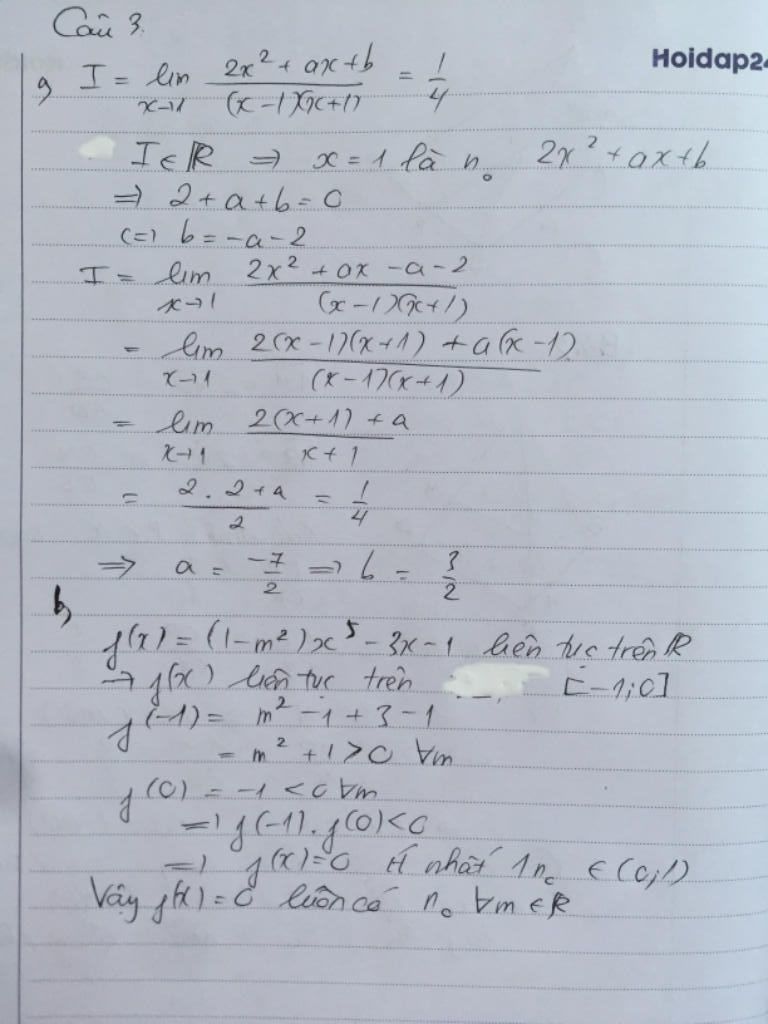 Câu 3.
Hoidap24
a, I = lim x→1 (2x² + ax + b)/((x-1)(x+1)) = 1/4
I ∈ ℝ ⇒ x = 1 là n₀ 2x² + ax + b
⇒ 2 + a + b = 0
<=> b = -a - 2
I = lim x→1 (2x² + ax - a - 2)/((x-1)(x+1))
= lim x→1 (2(x-1)(x+1) + a(x-1))/((x-1)(x+1))
= lim x→1 (2(x+1) + a)/(x+1)
= (2.2 + a)/2 = 1/4
⇒ a = -7/2 ⇒ b = 3/2
b,
f(x) = (1-m²)x⁵ - 3x - 1 liên tục trên ℝ
→ f(x) liên tục trên [-1;0]
f(-1) = m² - 1 + 3 - 1
= m² + 1 > 0 ∀m
f(0) = -1 < 0 ∀m
⇒ f(-1).f(0) < 0
⇒ f(x) = 0 ít nhất 1 n₀ ∈ (0;1)
Vậy f(x) = 0 luôn có n₀ ∀m ∈ ℝ